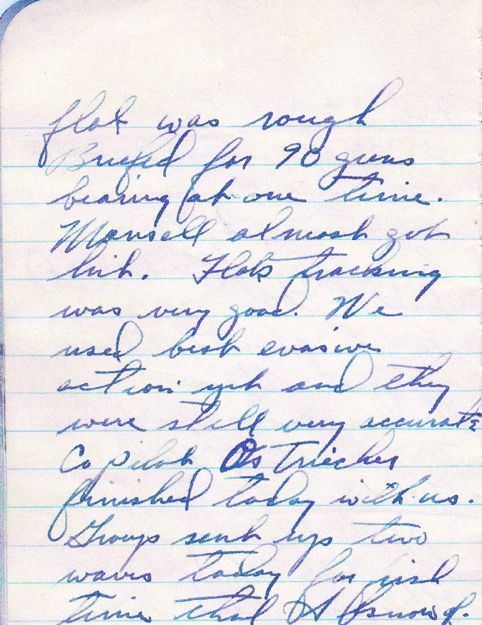 flak was rough
Briefed for 90 guns
bearing at one time.
Mansell almost got
hit. Flak tracking
was very good. We
used best evasive
action yet and they
were still very accurate
Co pilot Ostricher
finished today with us.
Group sent up two
waves today for first
time that I know of.